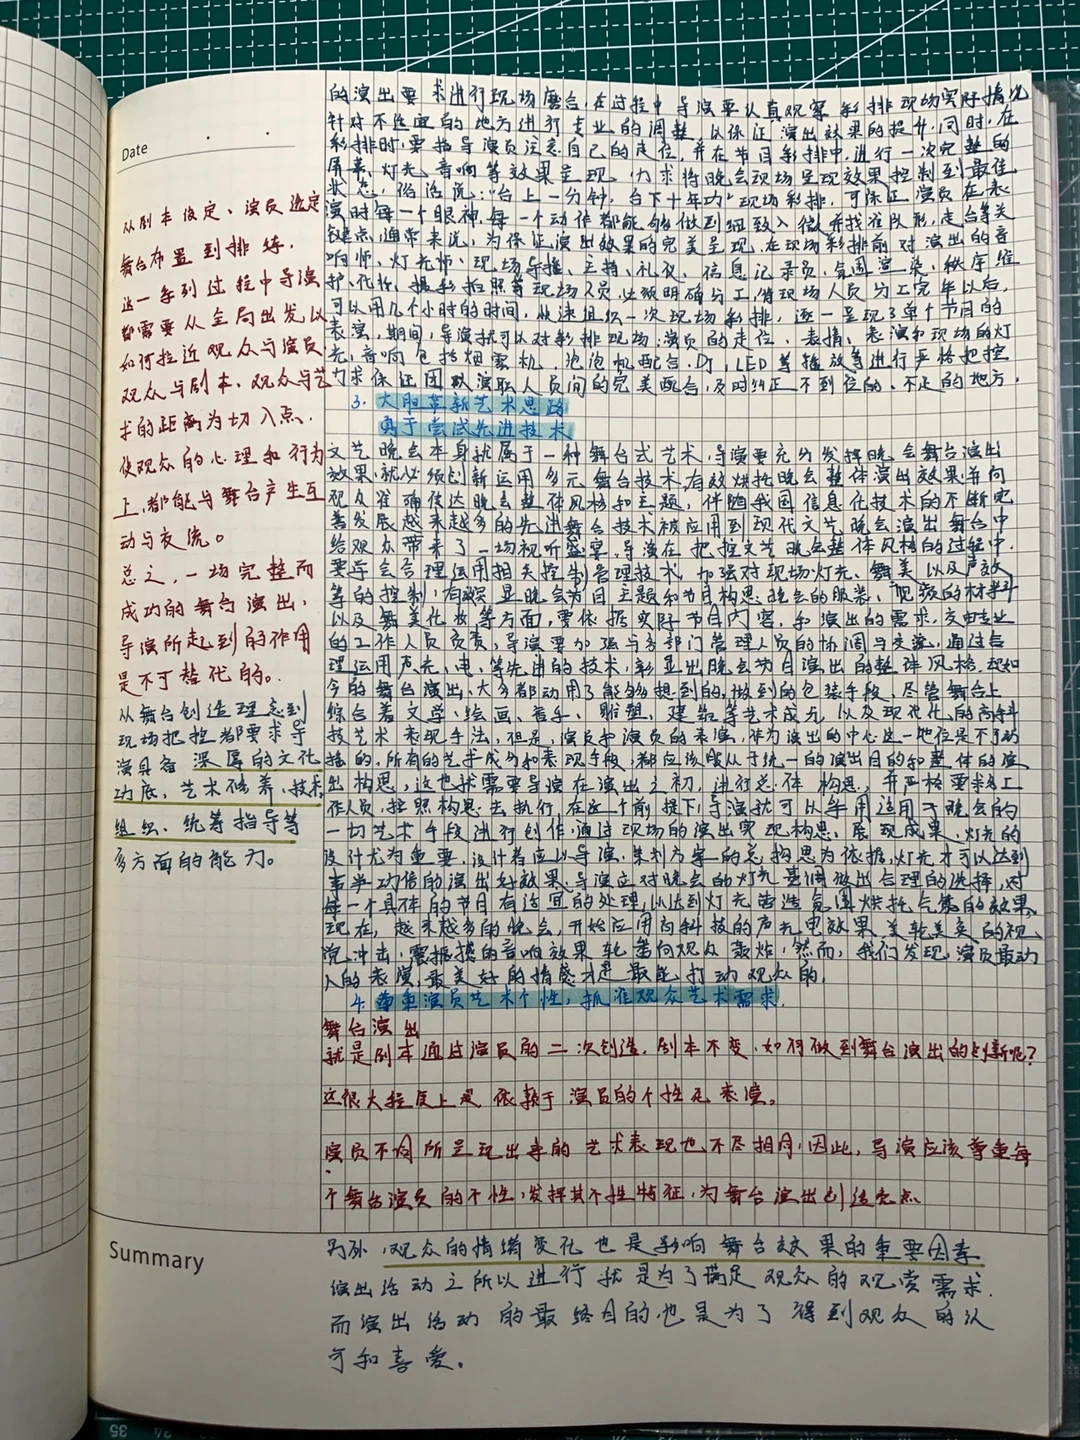 Date
从剧本设定、演员选定
舞台布置到排练.
这一系列过程中导演
都需要从全局出发以
如何拉近观众与演员
观众与剧本、观众与艺
术的距离为切入点.
使观众的心理和行为
上,都能与舞台产生互
动与交流。
总之,一场完整而
成功的舞台演出,
导演所起到的作用
是不可替代的。
从舞台创造理念到
现场把控都要求导
演具备 深厚的文化
功底、艺术修养、技术
组织、统筹指导等
多方面的能力。
的演出要求进行现场磨合,在过程中导演要认真观察彩排现场实际情况
针对不适宜的地方进行专业的调整,以保证演出效果的提升,同时,在
彩排时,要指导演员注意自己的走位,并在节目彩排中,进行一次完整的
屏幕、灯光、音响等效果呈现,力求将晚会现场呈现效果控制到最佳
状态,俗话说:“台上一分钟,台下十年功”现场彩排,可保证演员在表
演时每一个眼神,每一个动作都能够做到细致入微,并找准队形,走台等关
键点,通常来说,为保证演出效果的完美呈现,在现场彩排前对演出的音
响师、灯光师、现场导播、主持、礼仪、信息记录员、氛围渲染、秩序维
护、化妆、摄影拍照等现场人员,必须明确分工,待现场人员分工完毕以后,
可以用几个小时的时间,快速组织一次现场彩排,逐一呈现了单个节目的
表演,期间,导演就可以对彩排现场,演员的走位、表情、表演和现场的灯
光,音响包括烟雾机、泡泡机配合,DJ,LED等播放等进行严格把控
力求保证团队演职人员间的完美配合,及时纠正不到位的、不足的地方.
3. 大胆革新艺术思路
勇于尝试先进技术
文艺晚会本身就属于一种舞台式艺术,导演要充分发挥晚会舞台演出
效果,就必须创新运用多元舞台技术,有效烘托晚会整体演出效果,并向
观众准确传达晚会整体风格和主题,伴随我国信息化技术的不断完
善发展,越来越多的先进舞台技术被应用到现代文艺晚会演出舞台中
给观众带来了一场视听盛宴,导演在把控文艺晚会整体风格的过程中,
要学会合理运用相关控制管理技术,加强对现场灯光、舞美以及声效
等的控制,有效突显晚会节目主题和节目构思,晚会的服装、
以及舞美化妆等方面,要依据实际节目内容,和演出的需求,交由专业
的工作人员负责,导演要加强与多部门管理人员的协调与交流,通过合
理运用声、光、电、等先进的技术,彰显出晚会节目演出的整体风格,现如
今的舞台演出,大多都动用了能够想到的,做到的包装手段,尽管舞台上
综合着文学、绘画、音乐、雕塑、建筑等艺术成分,以及现代化的高科
技艺术表现手法,但是,演员和演员的表演,作为演出的中心这一地位是不可动
摇的,所有的艺术成分和表现手段,都应该服从于统一的演出目的和整体的演
出构思,这也就需要导演在演出之初,进行总体构思,并严格要求各工
作人员,按照构思去执行,在这个前提下,导演就可以采用适用于晚会的
一切艺术手段进行创作,通过现场的演出实现构思、展现成果,灯光的
设计尤为重要,设计者应以导演、策划方案的总构思为依据,灯光才可以达到
事半功倍的演出好效果,导演应对晚会的灯光基调做出合理的选择,对
每一个具体的节目有适宜的处理,以达到灯光营造氛围烘托气氛的效果,
现在,越来越多的晚会,开始应用高科技的声光电效果,美轮美奂的视
觉冲击,震撼的音响效果轮番向观众轰炸,然而,我们发现,演员最动
人的表演,最美好的情感才是最能打动观众的.
4. 尊重演员艺术个性,抓准观众艺术需求.
舞台演出
就是剧本通过演员的二次创造,剧本不变,如何做到舞台演出的创新呢?
这很大程度上是依赖于演员的个性化表演。
演员不同所呈现出来的艺术表现也不尽相同,因此,导演应该尊重每
个舞台演员的个性,发挥其个性特征,为舞台演出创造亮点.
Summary
另外,观众的情绪变化也是影响舞台效果的重要因素
演出活动之所以进行就是为了满足观众的观赏需求.
而演出活动的最终目的,也是为了得到观众的认
可和喜爱。